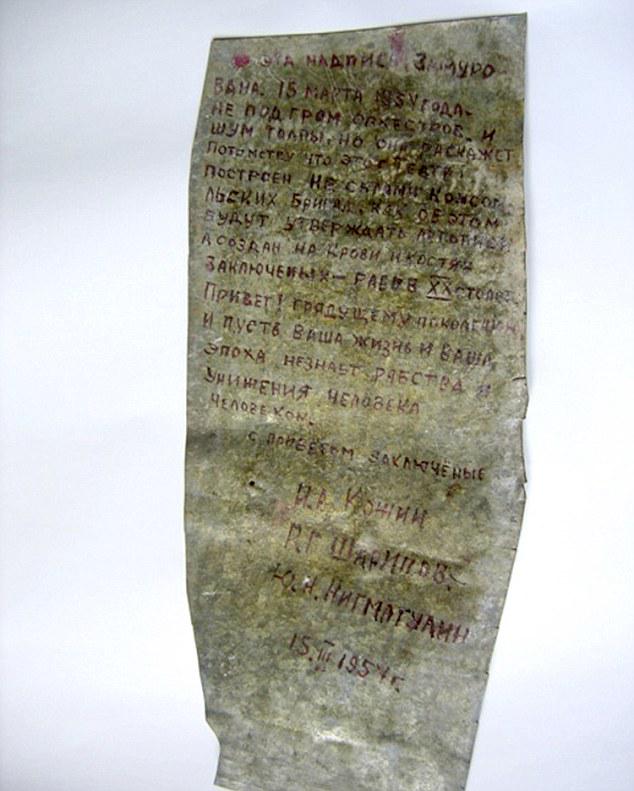 ЭТА НАДПИСЬ ЗАМУРО-
ВАНА. 15 МАРТА 1954 ГОДА.
НЕ ПОД ГРОМ ОРКЕСТРОВ. И
ШУМ ТОЛПЫ. НО ОНА РАСКАЖЕТ
ПОТОМСТВУ ЧТО ЭТОТ ТЕАТР
ПОСТРОЕН НЕ СИЛАМИ КОМСОМО
ЛЬСКИХ БРИГАД, КАК ОБ ЭТОМ
БУДУТ УТВЕРЖДАТЬ ЛЕТОПИСИ
А СОЗДАН НА КРОВИ И КОСТЯХ
ЗАКЛЮЧЕНЫХ — РАБОВ XX СТОЛЕТ
ПРИВЕТ! ГРЯДУЩЕМУ ПОКОЛЕНИЮ
И ПУСТЬ ВАША ЖИЗНЬ И ВАША
ЭПОХА НЕЗНАЕТ РАБСТВА И
УНИЖЕНИЯ ЧЕЛОВЕКА
ЧЕЛОВЕКОМ.
С ПРИВЕТОМ ЗАКЛЮЧЁНЫЕ
КОЖИН
Р.Г ШАРИПОВ.
Ю.Н. НИГМАТУЛИН
15.III 1954 г.